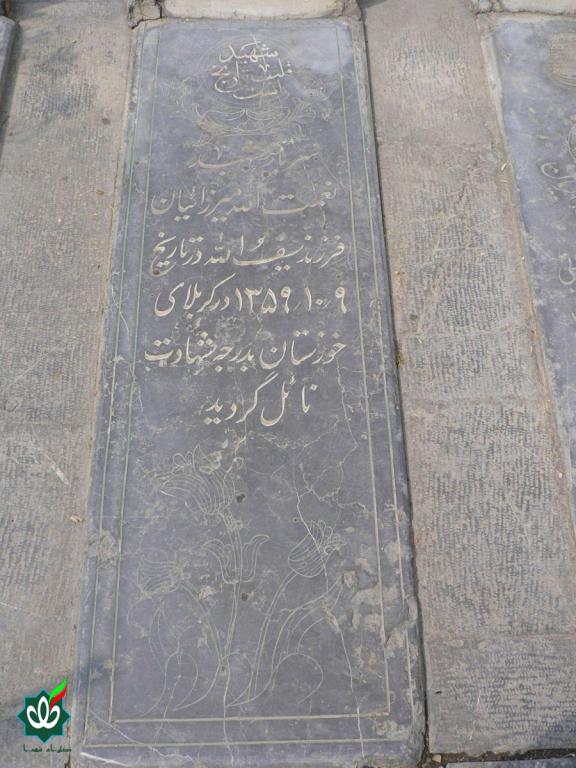 شهید
قلب تاریخ
است
سرباز شهید
نعمت الله میرزائیان
فرزند سیف الله در تاریخ
۱۳۵۹/۱۰/۹ در کربلای
خوزستان بدرجه شهادت
نائل گردید